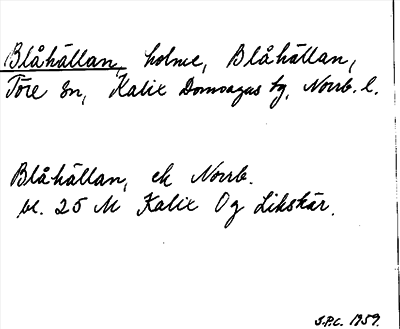 Blåhällan, holme, Blåhällan,
Töre sn, Kalix Domsagas tg, Norrb. l.
Blåhällan, ek Norrb.
bl. 25 M Kalix Og Likskär.
S.P.C. 1959.